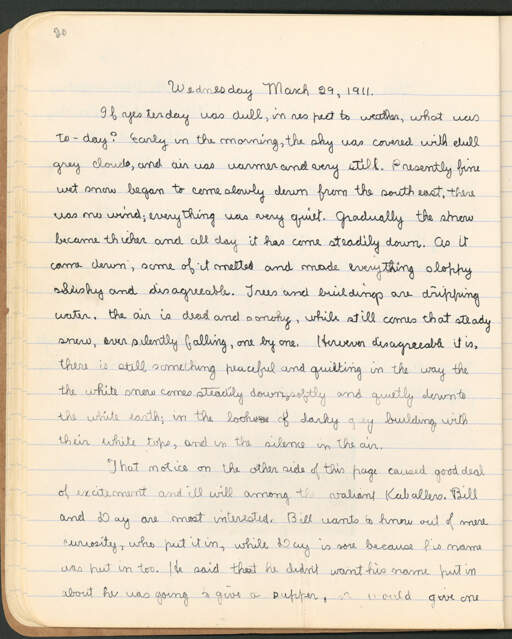 20
Wednesday March 29, 1911.
If yesterday was dull, in respect to weather, what was
to-day? Early in the morning, the sky was covered with dull
grey clouds, and air was warmer and very still. Presently fine
wet snow began to come slowly down from the southeast, there
was no wind; everything was very quiet. Gradually the snow
became thicker and all day it has come steadily down. As it
came down, some of it melted and made everything sloppy
slushy and disagreeable. Trees and buildings are dripping
water. the air is dead and smoky, while still comes that steady
snow, ever silently falling, one by one. However disagreeable it is,
there is still something peaceful and quieting in the way the
the white snow comes steadily down, softly and quietly down to
the white earth; in the looks of darky grey building with
their white tops, and in the silence in the air.
That notice on the other side of this page caused good deal
of excitement and ill will among the Kaballers. Bill
and Day are most interested. Bill wants to know out of mere
curiosity, who put it in, while Day is sore because his name
was put in too. He said that he didn't want his name put in
about he was going to give a supper, or would give one